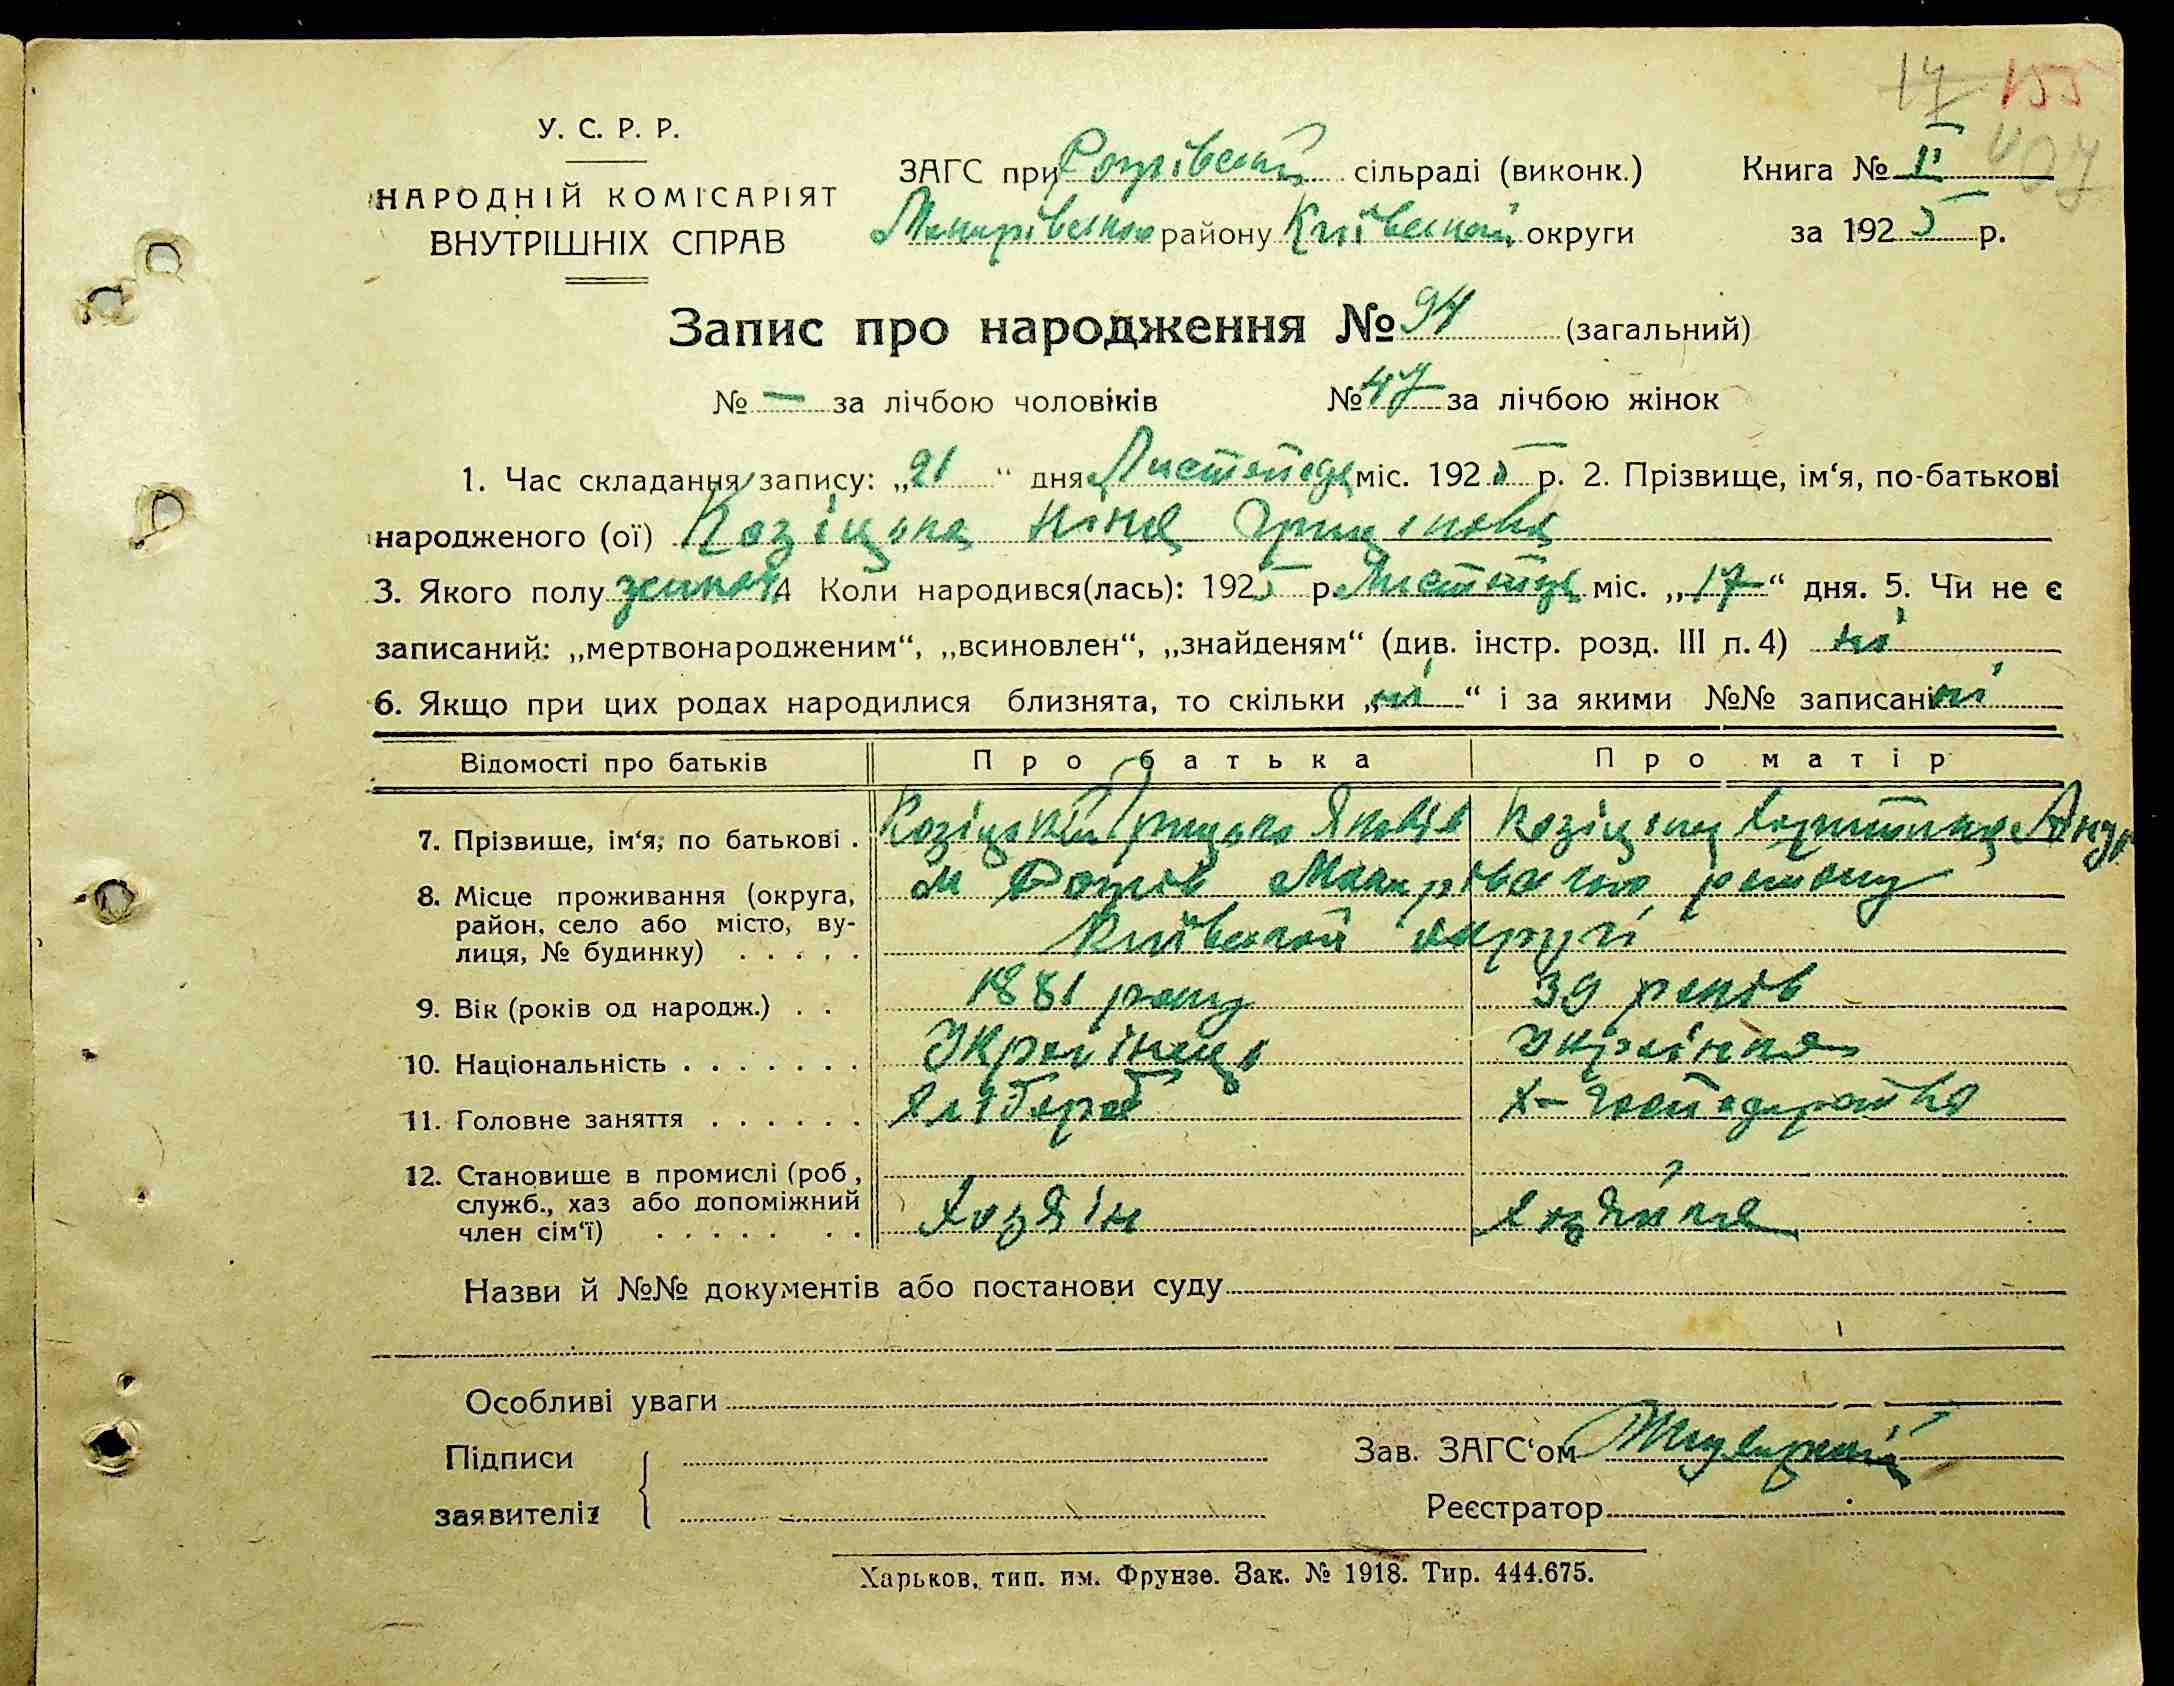 17 155
У. С. Р. Р.
НАРОДНІЙ КОМІСАРІЯТ
ВНУТРІШНІХ СПРАВ
ЗАГС при сільраді (виконк.)
Макарівського району Київської округи
Книга № ІІ
за 1925 р.
Запис про народження № 94 (загальний)
№ — за лічбою чоловіків № 47 за лічбою жінок
1. Час складання запису: „21“ дня Листопада міс. 1925 р. 2. Прізвище, ім‘я, по-батькові
народженого (ої) Козіцька Ніна Грицькова
3. Якого полу жіноч 4 Коли народився(лась): 1925 р. Листопада міс. „17“ дня. 5. Чи не є
записаний: „мертвонародженим“, „всиновлен“, „знайденям“ (див. інстр. розд. III п. 4) ні
6. Якщо при цих родах народилися близнята, то скільки „ні“ і за якими №№ записані ні
Відомості про батьків Про батька Про матір
7. Прізвище, ім‘я, по батькові . Козіцький Грицько Яковів Козіцька
8. Місце проживання (округа, м Макарівського району
район, село або місто, ву- Київської округи
лиця, № будинку) . . . . .
9. Вік (років од народж.) . . 1881 року 39 років
10. Національність . . . . . . . Українець Українка
11. Головне заняття . . . . . . Хлібороб х-господарство
12. Становище в промислі (роб.,
служб., хаз або допоміжний Хозяін Хозяйка
член сім‘ї) . . . . . . .
Назви й №№ документів або постанови суду
Особливі уваги
Підписи
заявителів
Зав. ЗАГС‘ом
Реєстратор
Харьков, тип. им. Фрунзе. Зак. № 1918. Тир. 444.675.